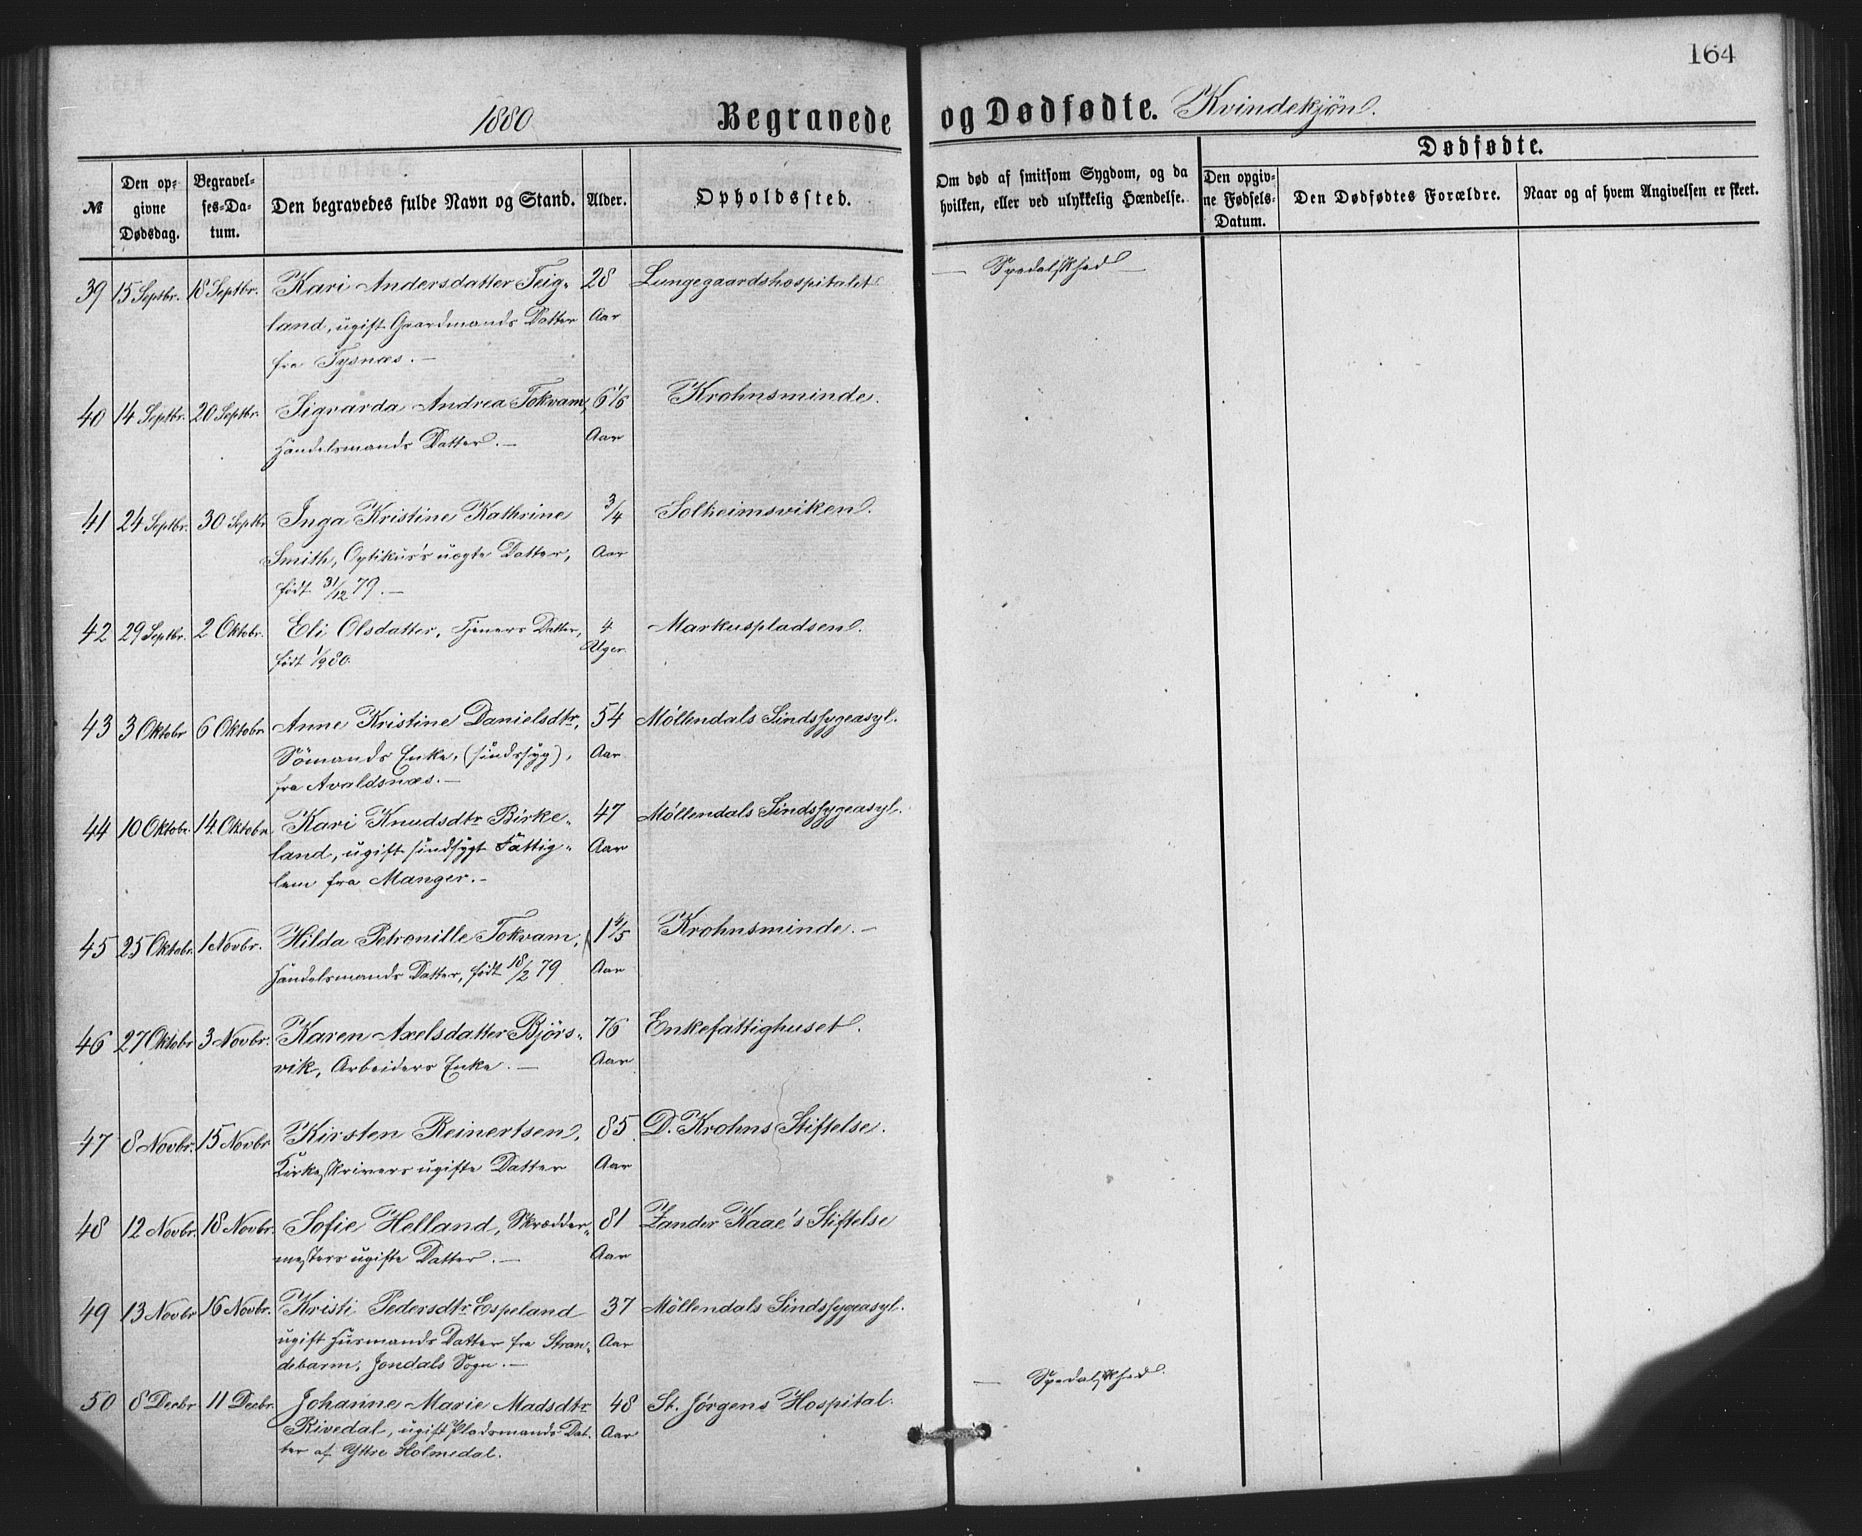 164
1880 Begravede og Dødfødte. Kvindekjøn.
№ Den opgivne Dødsdag. Begravelses-Datum. Den begravedes fulde Navn og Stand. Alder. Opholdssted. Om død af smitsom Sygdom, og da hvilken, eller ved ulykkelig Hændelse. Dødfødte. Den opgivne Fødsels-Datum. Den Dødfødtes Forældre. Naar og af hvem Angivelsen er skeet.
39 15 Septbr. 18 Septbr. Kari Andersdatter Teig- 28 Lungegaardshospitalet. — Spedalskhed —
land, ugift Gaardmands Datter Aar
fra Tysnæs. —
40 14 Septbr. 20 Septbr. Sigvarda Andrea Tokvam, 6 1/6 Krohnsminde.
Handelsmands Datter. — Aar
41 24 Septbr. 30 Septbr Inga Kristine Kathrine 3/4 Solheimsviken.
Smith, Optikus's uægte Datter, Aar
født 31/12 79. —
42 29 Septbr. 2 Oktobr. Eli Olsdatter, Tjeners Datter, 4 Markuspladsen.
født 1/9 80. Uger
43 3 Oktobr 6 Oktobr. Anne Kristine Danielsdtr, 54 Møllendals Sindssygeasyl.
Sömands Enke, (sindssyg), Aar
fra Avaldsnæs. —
44 10 Oktobr. 14 Oktobr. Kari Knudsdtr Birke- 47 Møllendals Sindssygeasyl.
land, ugift sindsygt Fattig- Aar
lem fra Manger. —
45 25 Oktobr. 1 Novbr. Hilda Petronille Tokvam, 1 4/5 Krohnsminde. —
Handelsmands Datter, født 18/2 79 Aar
46 27 Oktobr 3 Novbr. Karen Axelsdatter Bjørs- 76 Enkefattighuset.
vik, Arbeiders Enke. — Aar
47 8 Novbr. 15 Novbr Kirsten Reinertsen, 85 D. Krohns Stiftelse.
Kirkeskrivers ugifte Datter Aar
48 12 Novbr. 18 Novbr. Sofie Helland, Skrædder- 81 Zander Kaae's Stiftelse
mesters ugifte Datter. — Aar
49 13 Novbr 16 Novbr. Kristi Pedersdtr Espeland 37 Møllendals Sindssygeasyl.
ugift Husmands Datter fra Stran- Aar
debarm, Jondals Sogn. —
50 8 Decbr 11 Decbr. Johanne Marie Madsdtr 48 St. Jørgens Hospital. — Spedalskhed.
Rivedal, ugift Pladsmands Dat- Aar
ter af Yttre Holmedal.